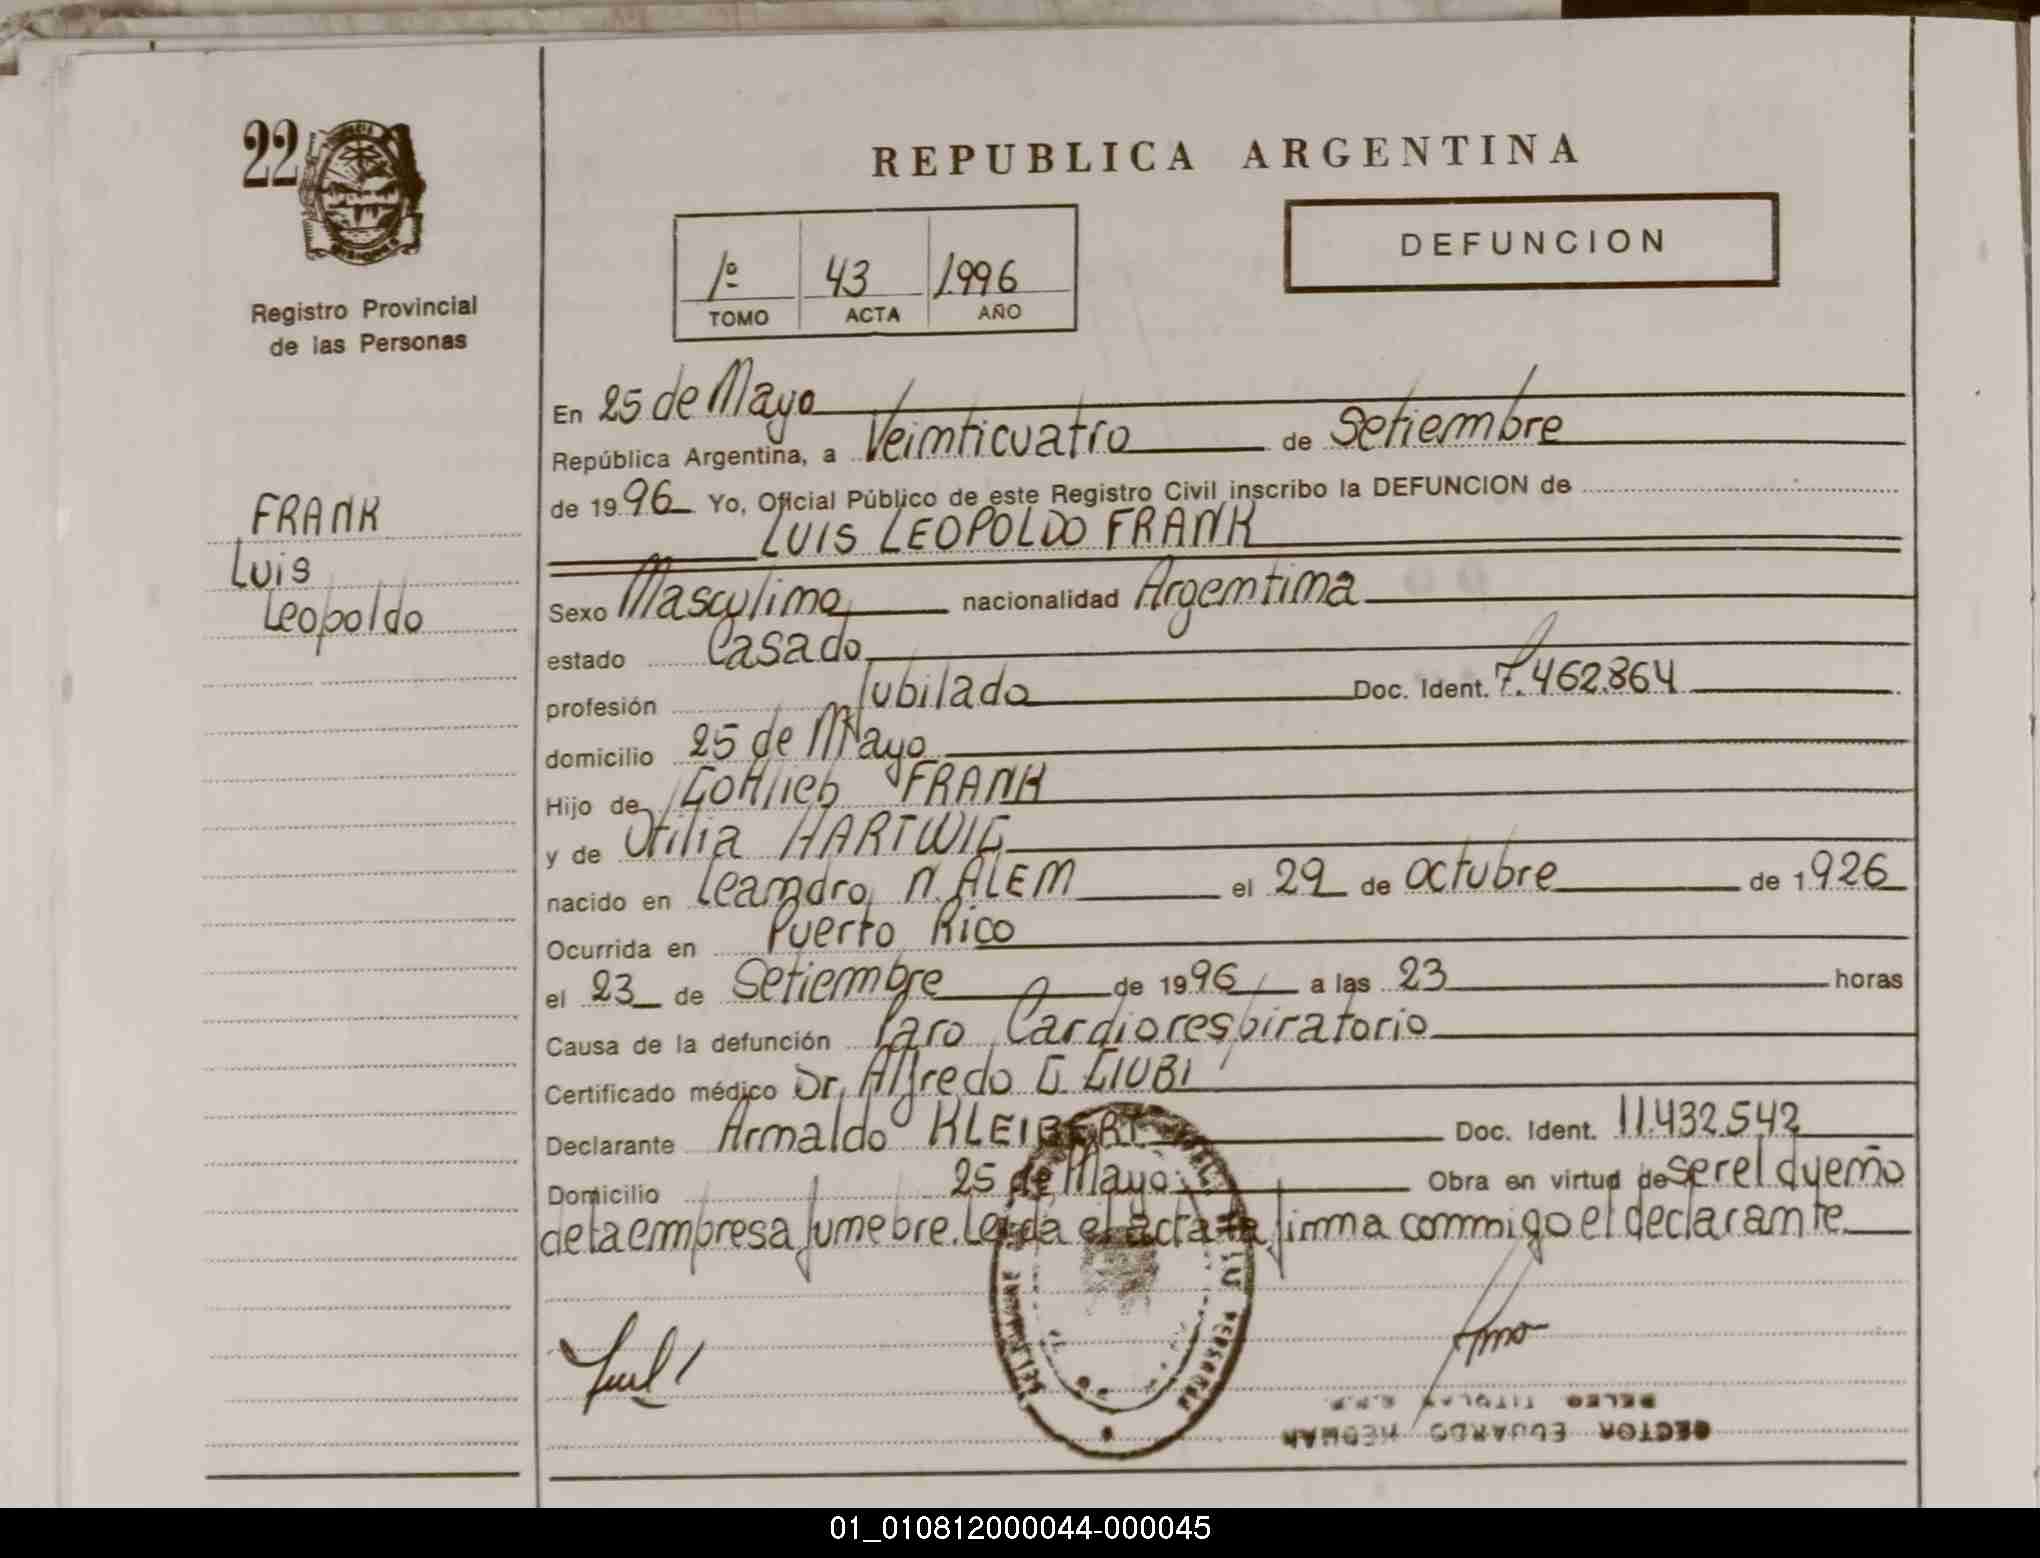 22
Registro Provincial
de las Personas
REPUBLICA ARGENTINA
1º 43 1996
TOMO ACTA AÑO
DEFUNCION
FRANK
Luis
Leopoldo
En 25 de Mayo
República Argentina, a Veinticuatro de Setiembre
de 1996 Yo, Oficial Público de este Registro Civil inscribo la DEFUNCION de
LUIS LEOPOLDO FRANK
Sexo Masculino nacionalidad Argentina
estado Casado
profesión Jubilado Doc. Ident. 7.462.864
domicilio 25 de Mayo
Hijo de Gottlieb FRANK
y de Otilia HARTWIG
nacido en Leandro N. ALEM el 29 de octubre de 1926
Ocurrida en Puerto Rico
el 23 de Setiembre de 1996 a las 23 horas
Causa de la defunción Paro Cardiorespiratorio
Certificado médico Dr. Alfredo G. GIUBI
Declarante Arnaldo KLEIBERT Doc. Ident. 11.432.542
Domicilio 25 de Mayo Obra en virtud de ser el dueño
de la empresa funebre. Leida el acta la firma conmigo el declarante
PERSONAS
TITULAR
EDUARDO
01_010812000044-000045